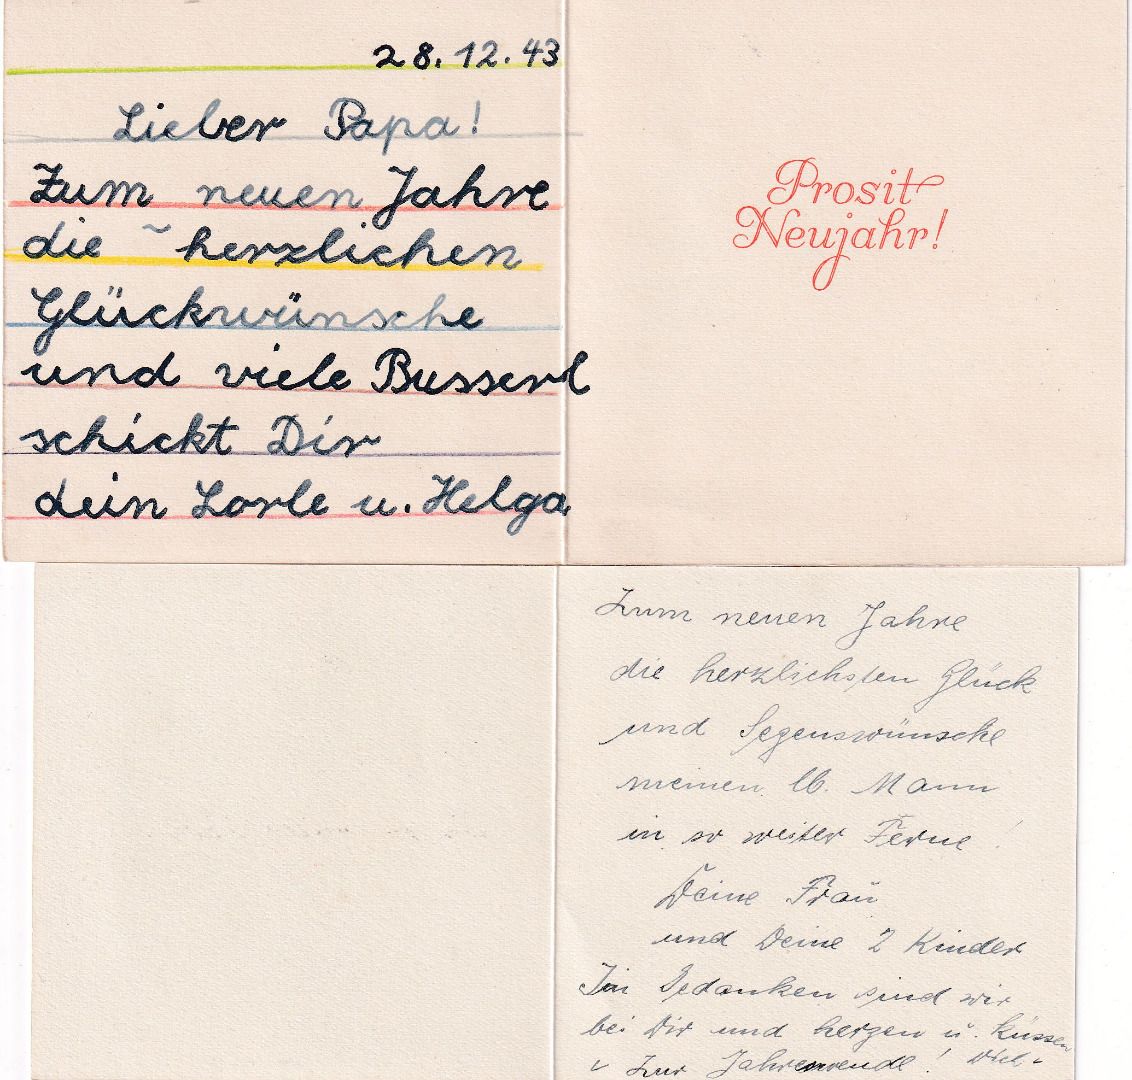 28.12.43
Lieber Papa!
Zum neuen Jahre
die herzlichen
Glückwünsche
und viele Busserl
schickt Dir
dein Lorle u. Helga
Prosit
Neujahr!
Zum neuen Jahre
die herzlichsten Glück
und Segenswünsche
meinen lb. Mann
in so weiter Ferne!
Deine Frau
und Deine 2 Kinder
In Gedanken sind wir
bei Dir und herzen u. küssen
Dich
zur Jahreswende!